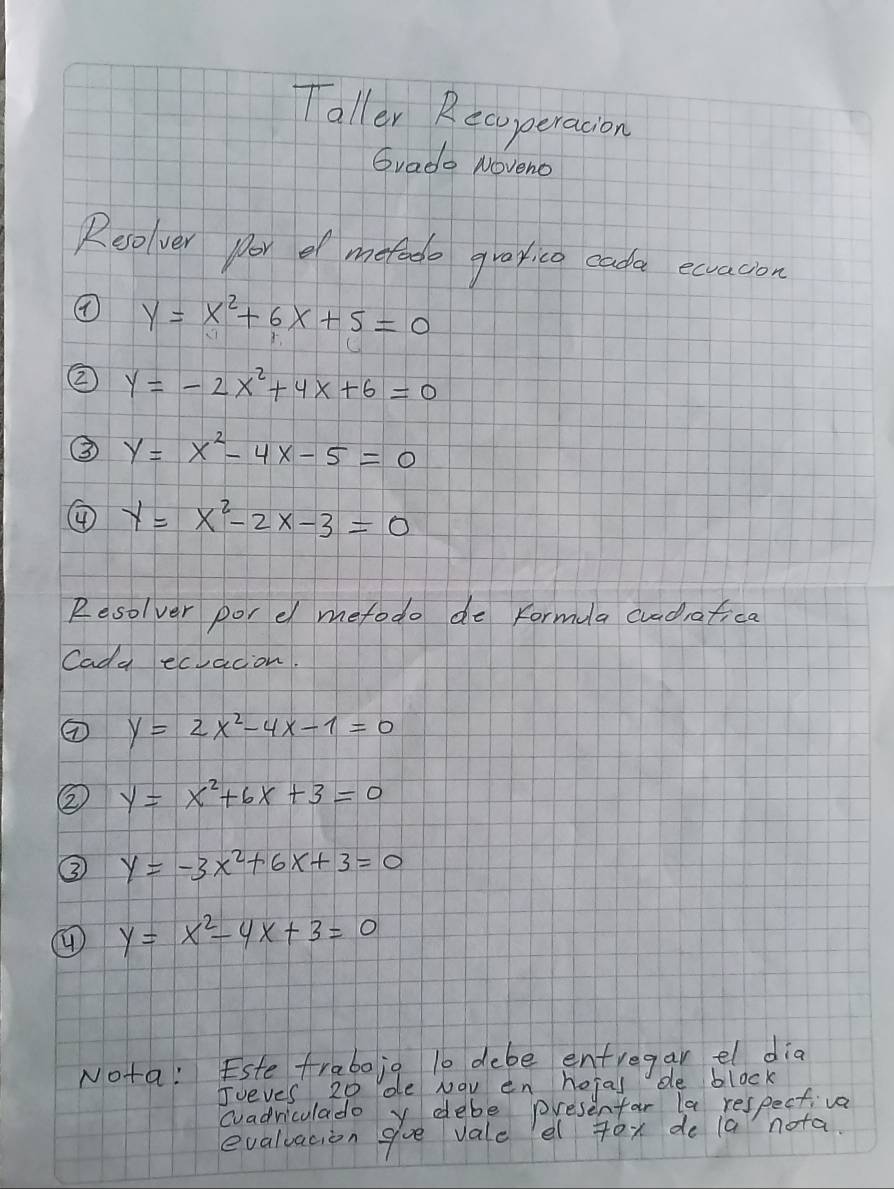 Taller Recuperacion
Grado Noveno
Resolver por el metodo grafico cada ecuacion
① y = x² + 6x + 5 = 0
② y = - 2x² + 4x + 6 = 0
③ y = x² - 4x - 5 = 0
④ y = x² - 2x - 3 = 0
Resolver por el metodo de formula cuadratica
Cada ecuacion.
① y = 2x² - 4x - 1 = 0
② y = x² + 6x + 3 = 0
③ y = -3x² + 6x + 3 = 0
④ y = x² - 4x + 3 = 0
Nota: Este trabajo lo debe entregar el dia
Jueves 20 de Nov en hojas de block
cuadriculado y debe presentar la respectiva
evaluacion que vale el 70% de la nota.